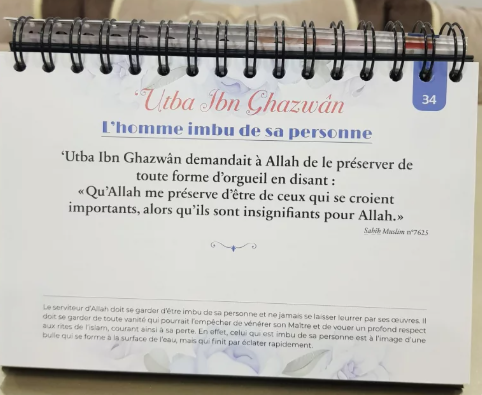 34
‘Utba Ibn Ghazwân
L'homme imbu de sa personne
‘Utba Ibn Ghazwân demandait à Allah de le préserver de
toute forme d'orgueil en disant :
« Qu'Allah me préserve d'être de ceux qui se croient
importants, alors qu'ils sont insignifiants pour Allah. »
Sahîh Muslim n°7625
Le serviteur d'Allah doit se garder d'être imbu de sa personne et ne jamais se laisser leurrer par ses œuvres. Il
doit se garder de toute vanité qui pourrait l'empêcher de vénérer son Maître et de vouer un profond respect
aux rites de l'islam, courant ainsi à sa perte. En effet, celui qui est imbu de sa personne est à l'image d'une
bulle qui se forme à la surface de l'eau, mais qui finit par éclater rapidement.